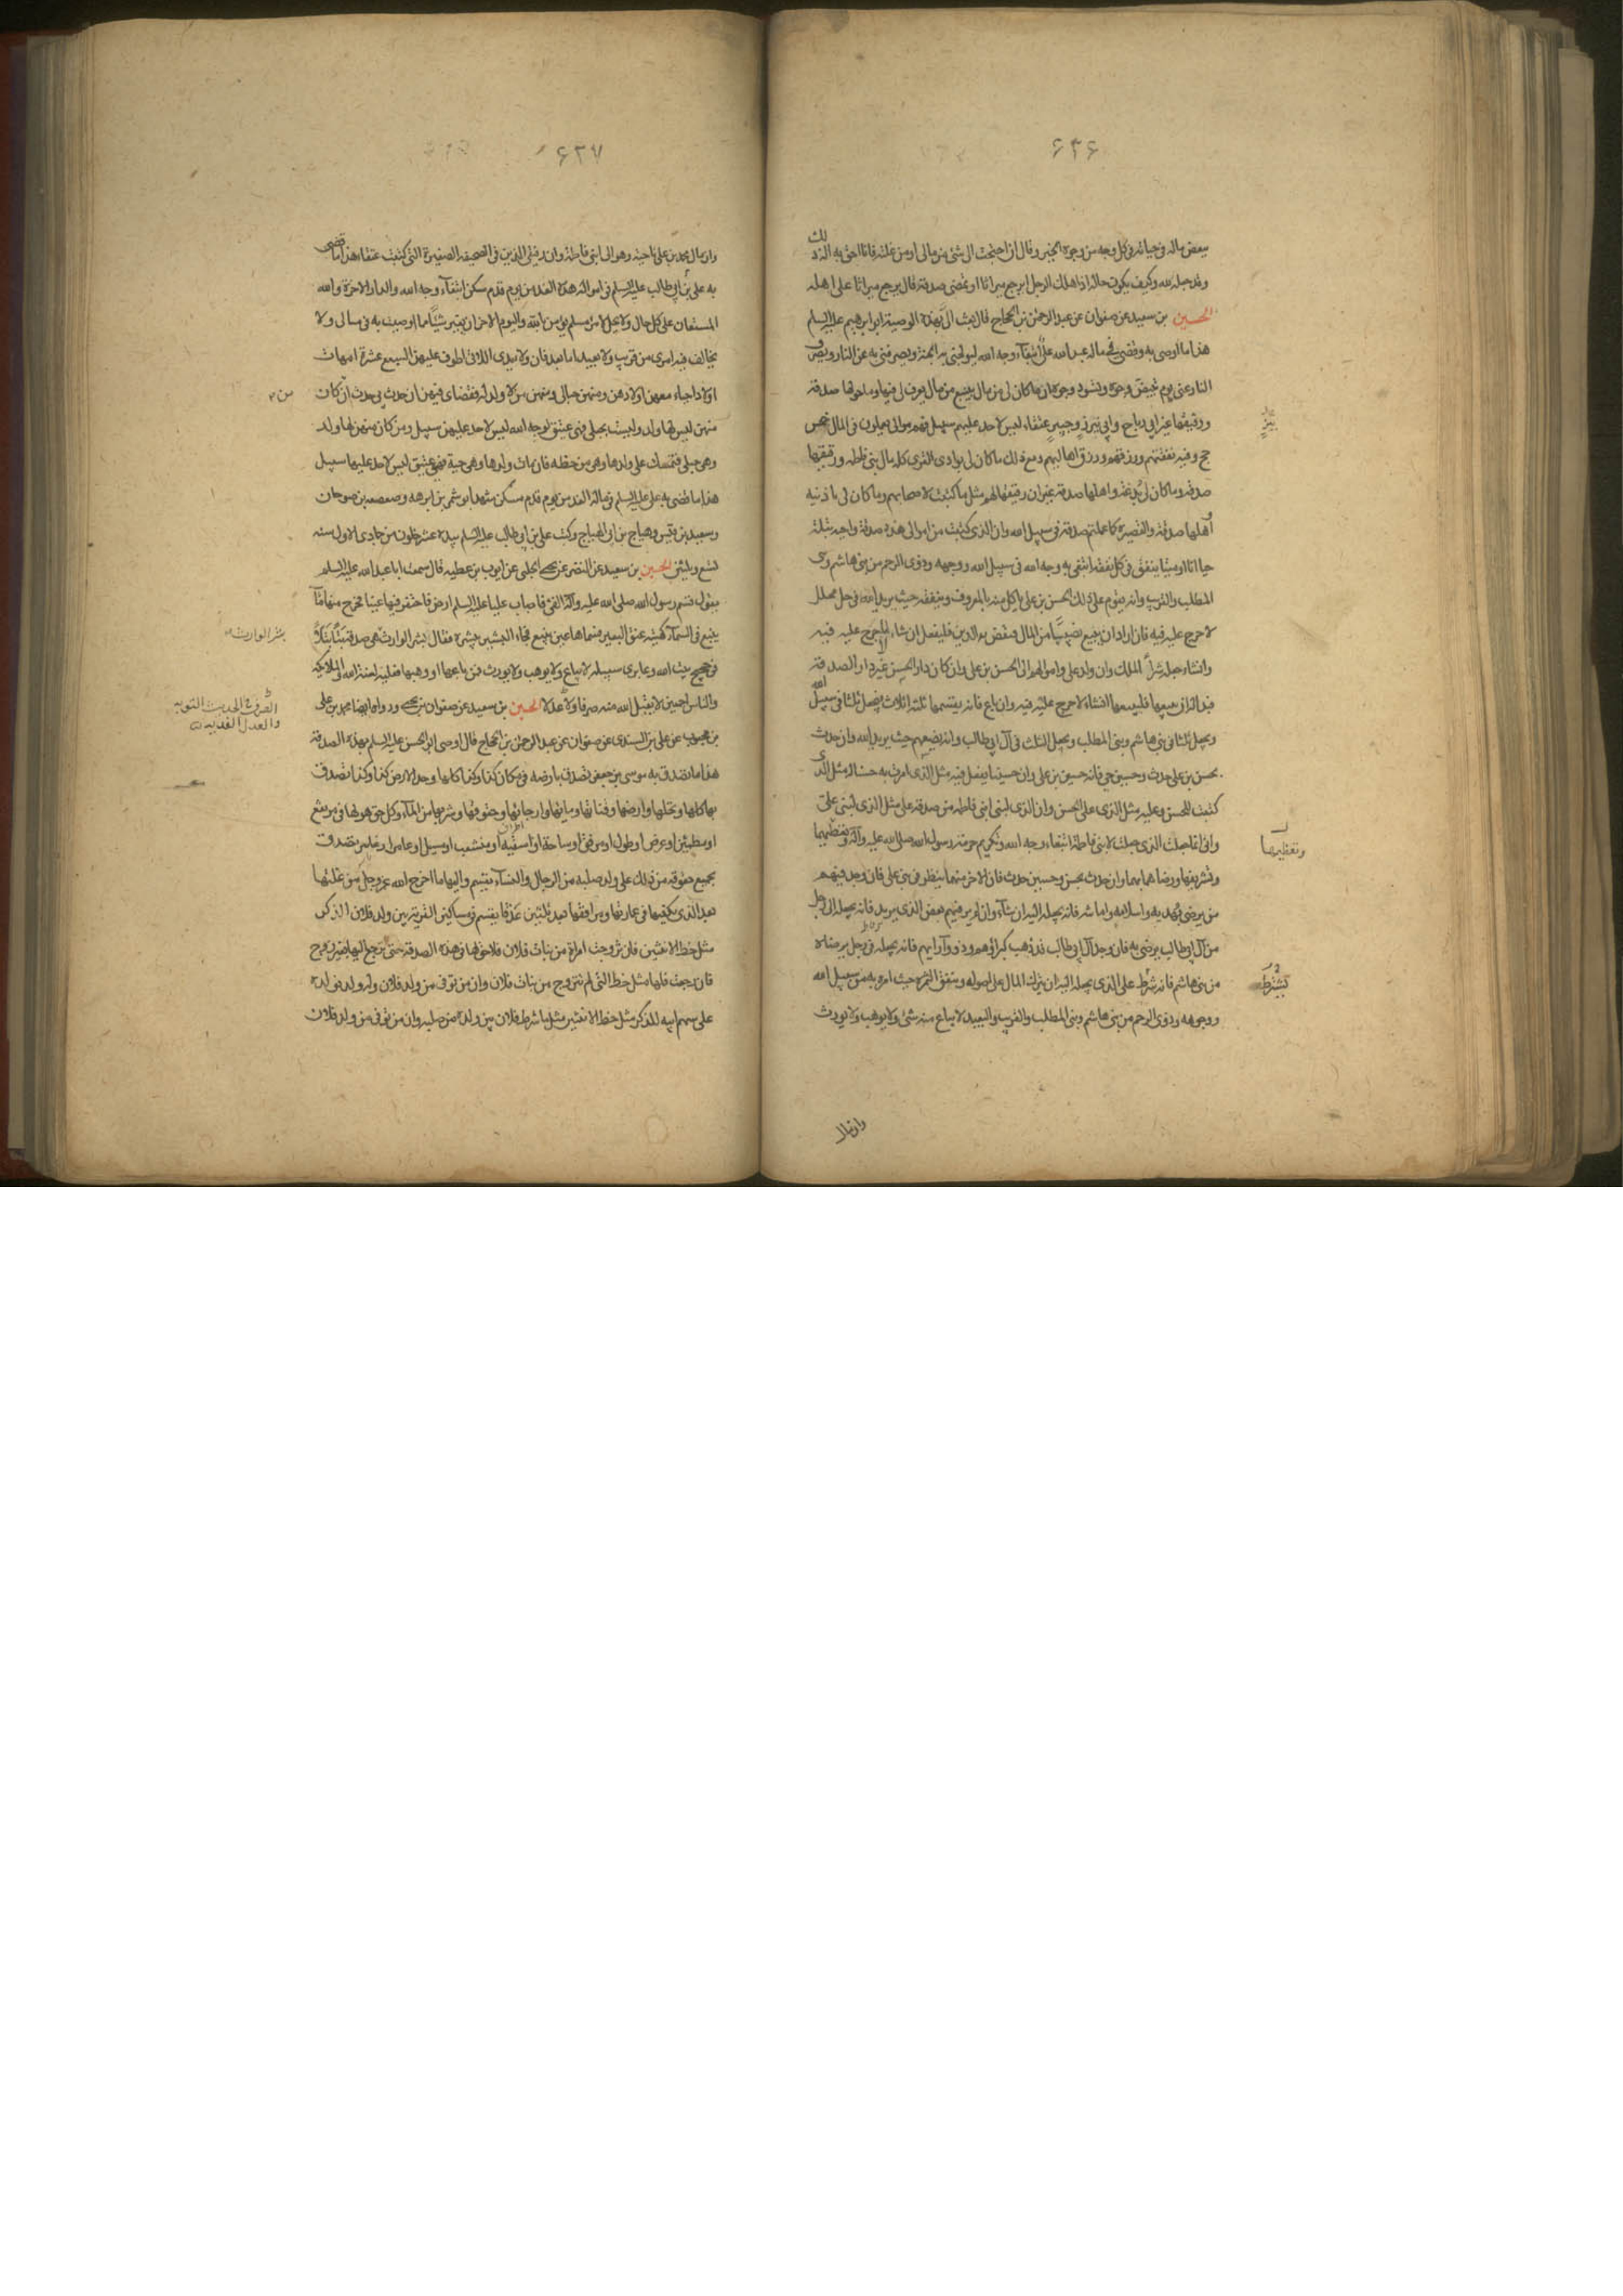 ۶۳۶
ببعض ماله فى حياته فى كل وجه من وجوه الخير وقال ان احتجت الى شئ من مالى او من غلته فانا احق به اله ذلك
وقد جعله لله وكيف يكون حاله اذا هلك الرجل ايرجع ميراثا او يمضى صدقة قال يرجع ميراثا على اهله
الحسين بن سعيد عن صفوان عن عبد الرحمن بن الحجاج قال بعث الى بهذه الوصية ابو ابرهيم عليه السلام
هذا ما اوصى به وقضى فى ماله عبد الله على ابتغاء وجه الله ليولجنى به الجنة ويصرفنى به عن النار ويصرف
النار عنى يوم تبيض وجوه وتسود وجوه ان ما كان لى من مال ينبع من مال يعرف لى فيها وما حولها صدقة
ورقيقها غير ابى رباح وابى نيزر وجبير عتقاء ليس لاحد عليهم سبيل فهم موالى يعملون فى المال خمس
حجج وفيه نفقتهم ورزقهم ورزق اهاليهم ومع ذلك ما كان لى بوادى القرى كله مال بنى فاطمه ورقيقها
صدقة وما كان لى بذعة واهلها صدقة غير ان رقيقها لهم مثل ما كتبت لاصحابهم وما كان لى باذنيه
واهلها صدقة والقصيرة كما علمتم صدقة فى سبيل الله وان الذى كتبت من اموالى هذه صدقة واجبة بتلة
حيا انا او ميتا ينفق فى كل نفقة ابتغى به وجه الله فى سبيل الله ووجهه وذوى الرحم من بنى هاشم وبنى
المطلب والقريب وانه يقوم على ذلك الحسن بن على ياكل منه بالمعروف وينفقه حيث يريد الله فى حل محلل
لا حرج عليه فيه فان اراد ان يبيع نصيبا من المال فيقضى به الدين فليفعل ان شاء لا حرج عليه فيه
وان شاء جعله شراء الملك وان ولد على واموالهم الى الحسن بن على وان كان دار الحسن غير دار الصدقة
فبدا له ان يبيعها فليبيعها ان شاء لا حرج عليه فيه وان باع فانه يقسمها ثلثة اثلاث فيجعل ثلثا فى سبيل الله
ويجعل ثلثا فى بنى هاشم وبنى المطلب ويجعل الثلث فى آل ابى طالب وانه يضعهم حيث يريد الله وان حدث
بحسن بن على حدث وحسين حى فانه حسين بن على وان حسينا يفعل فيه مثل الذى امرت به حسنا له مثل الذى
كتبت للحسن وعليه مثل الذى على الحسن وان الذى لبنى ابنى فاطمه من صدقة على مثل الذى لبنى على
وانى انما جعلت الذى جعلت لابنى فاطمة ابتغاء وجه الله وتكريم حرمة رسول الله صلى الله عليه وآله وتعظيمهما
وتشريفها ورضاهما بهما وان حدث بحسن وحسين حدث فان الاخر منهما ينظر فى بنى على فان وجد فيهم
من يرضى بهديه واسلامه وامانته فانه يجعله اليه ان شاء وان لم ير فيهم بعض الذى يريد فانه يجعله الى رجل
من آل ابى طالب يرضى به فان وجد آل ابى طالب قد ذهب كبراؤهم وذوو آرايهم فانه يجعله فى رجل يرضاه
من بنى هاشم فانه شرط على الذى يجعله اليه ان يترك المال على اصوله وينفق الثمرة حيث امره به من سبيل الله
ووجوهه وذوى الرحم من بنى هاشم وبنى المطلب والقريب والبعيد لا يباع منه شئ ولا يوهب ولا يورث
وتعظيمها
يشترط
وان مال
۶۳۷
وان مال محمد بن على ناحية وهو الى ابنى فاطمة وان رقيقى الذين فى الصحيفه الصغيرة التى كتبت عتقاء هذا ما قضى
به على بن ابى طالب عليه السلام فى امواله هذه الغد من يوم قدم مسكن ابتغاء وجه الله والدار الاخرة والله
المستعان على كل حال ولا يحل لامرء مسلم يؤمن بالله واليوم الاخر ان يغير شيئا مما اوصيت به فى مالى ولا
يخالف فيه امرى من قريب ولا بعيد اما بعد فان ولايدى اللاتى اطوف عليهن السبع عشرة امهات
اولاد احياء معهن اولادهن ومنهن حبالى ومنهن من لا ولد له فقضاى فيهن ان حدث بى حدث ان كان
منهن ليس لها ولد وليست بحبلى فهى عتيق لوجه الله ليس لاحد عليهن سبيل ومن كان منهن لها ولد
وهى حبلى فتمسك على ولدها وهى من حظه فان مات ولدها وهى حية فهى عتيق ليس لاحد عليها سبيل
هذا ما قضى به على عليه السلام فى ماله الغد من يوم قدم مسكن شهد ابو شمر بن ابرهه وصعصعه بن صوحان
وسعيد بن قيس وهياج بن ابى الهياج وكتب على بن ابى طالب عليه السلام بيده لعشر خلون من جمادى الاول سنه
تسع وثلثين الحسين بن سعيد عن النضر عن يحيى الحلبى عن ايوب بن عطيه قال سمعت ابا عبد الله عليه السلام
يقول قسم رسول الله صلى الله عليه وآله الفئ فاصاب عليا عليه السلام ارض فاحتفر فيها عينا فخرج منها ماء
ينبع فى السماء كهيئة عنق البعير فسماها عين ينبع فجاء البشير يبشره فقال بشر الوارث هى صدقة بتا بتلا
فى حجيج بيت الله وعابرى سبيله لا يباع ولا يوهب ولا يورث فمن باعها او وهبها فعليه لعنة الله والملائكه
والناس اجمعين لا يقبل الله منه صرفا ولا عدلا الحسين بن سعيد عن صفوان بن يحيى ورواه ايضا محمد بن على
بن محبوب عن على بن السندى عن صفوان عن عبد الرحمن بن الحجاج قال اوصى ابو الحسن عليه السلام بهذه الصدقة
هذا ما تصدق به موسى بن جعفر تصدق بارضه فى مكان كذا وكذا كلها وحد الارض كذا وكذا تصدق
بها كلها ونخلها وارضها وقناتها ومائها وارجائها وحقوقها وشربها من الماء وكل حق هو لها فى مرتفع
او مطمئن او عرض او طول او مرفق او ساحة او اسقية او متشعب او مسيل او عامر او غامر تصدق
بجميع حقوقه من ذلك على ولد صلبه من الرجال والنساء يقسم واليها ما اخرج الله عز وجل من غلتها
بعد الذى يكفيها فى عمارتها ومرافقها وبعد ثلثين عذقا يقسم فى مساكين القرية بين ولد فلان الذكر
مثل حظ الانثيين فان تزوجت امراة من بنات فلان فلا حق لها فى هذه الصدقة حتى ترجع اليها بغير زوج
فان رجعت فلها مثل حظ التى لم تتزوج من بنات فلان وان من توفى من ولد فلان وله ولد فولده
على سهم ابيه للذكر مثل حظ الانثيين مثل ما شرط فلان بين ولده من صلبه وان من توفى من ولد فلان
بشر الوارث
الصرف فى الحديث التوبه
والعدل الفديه